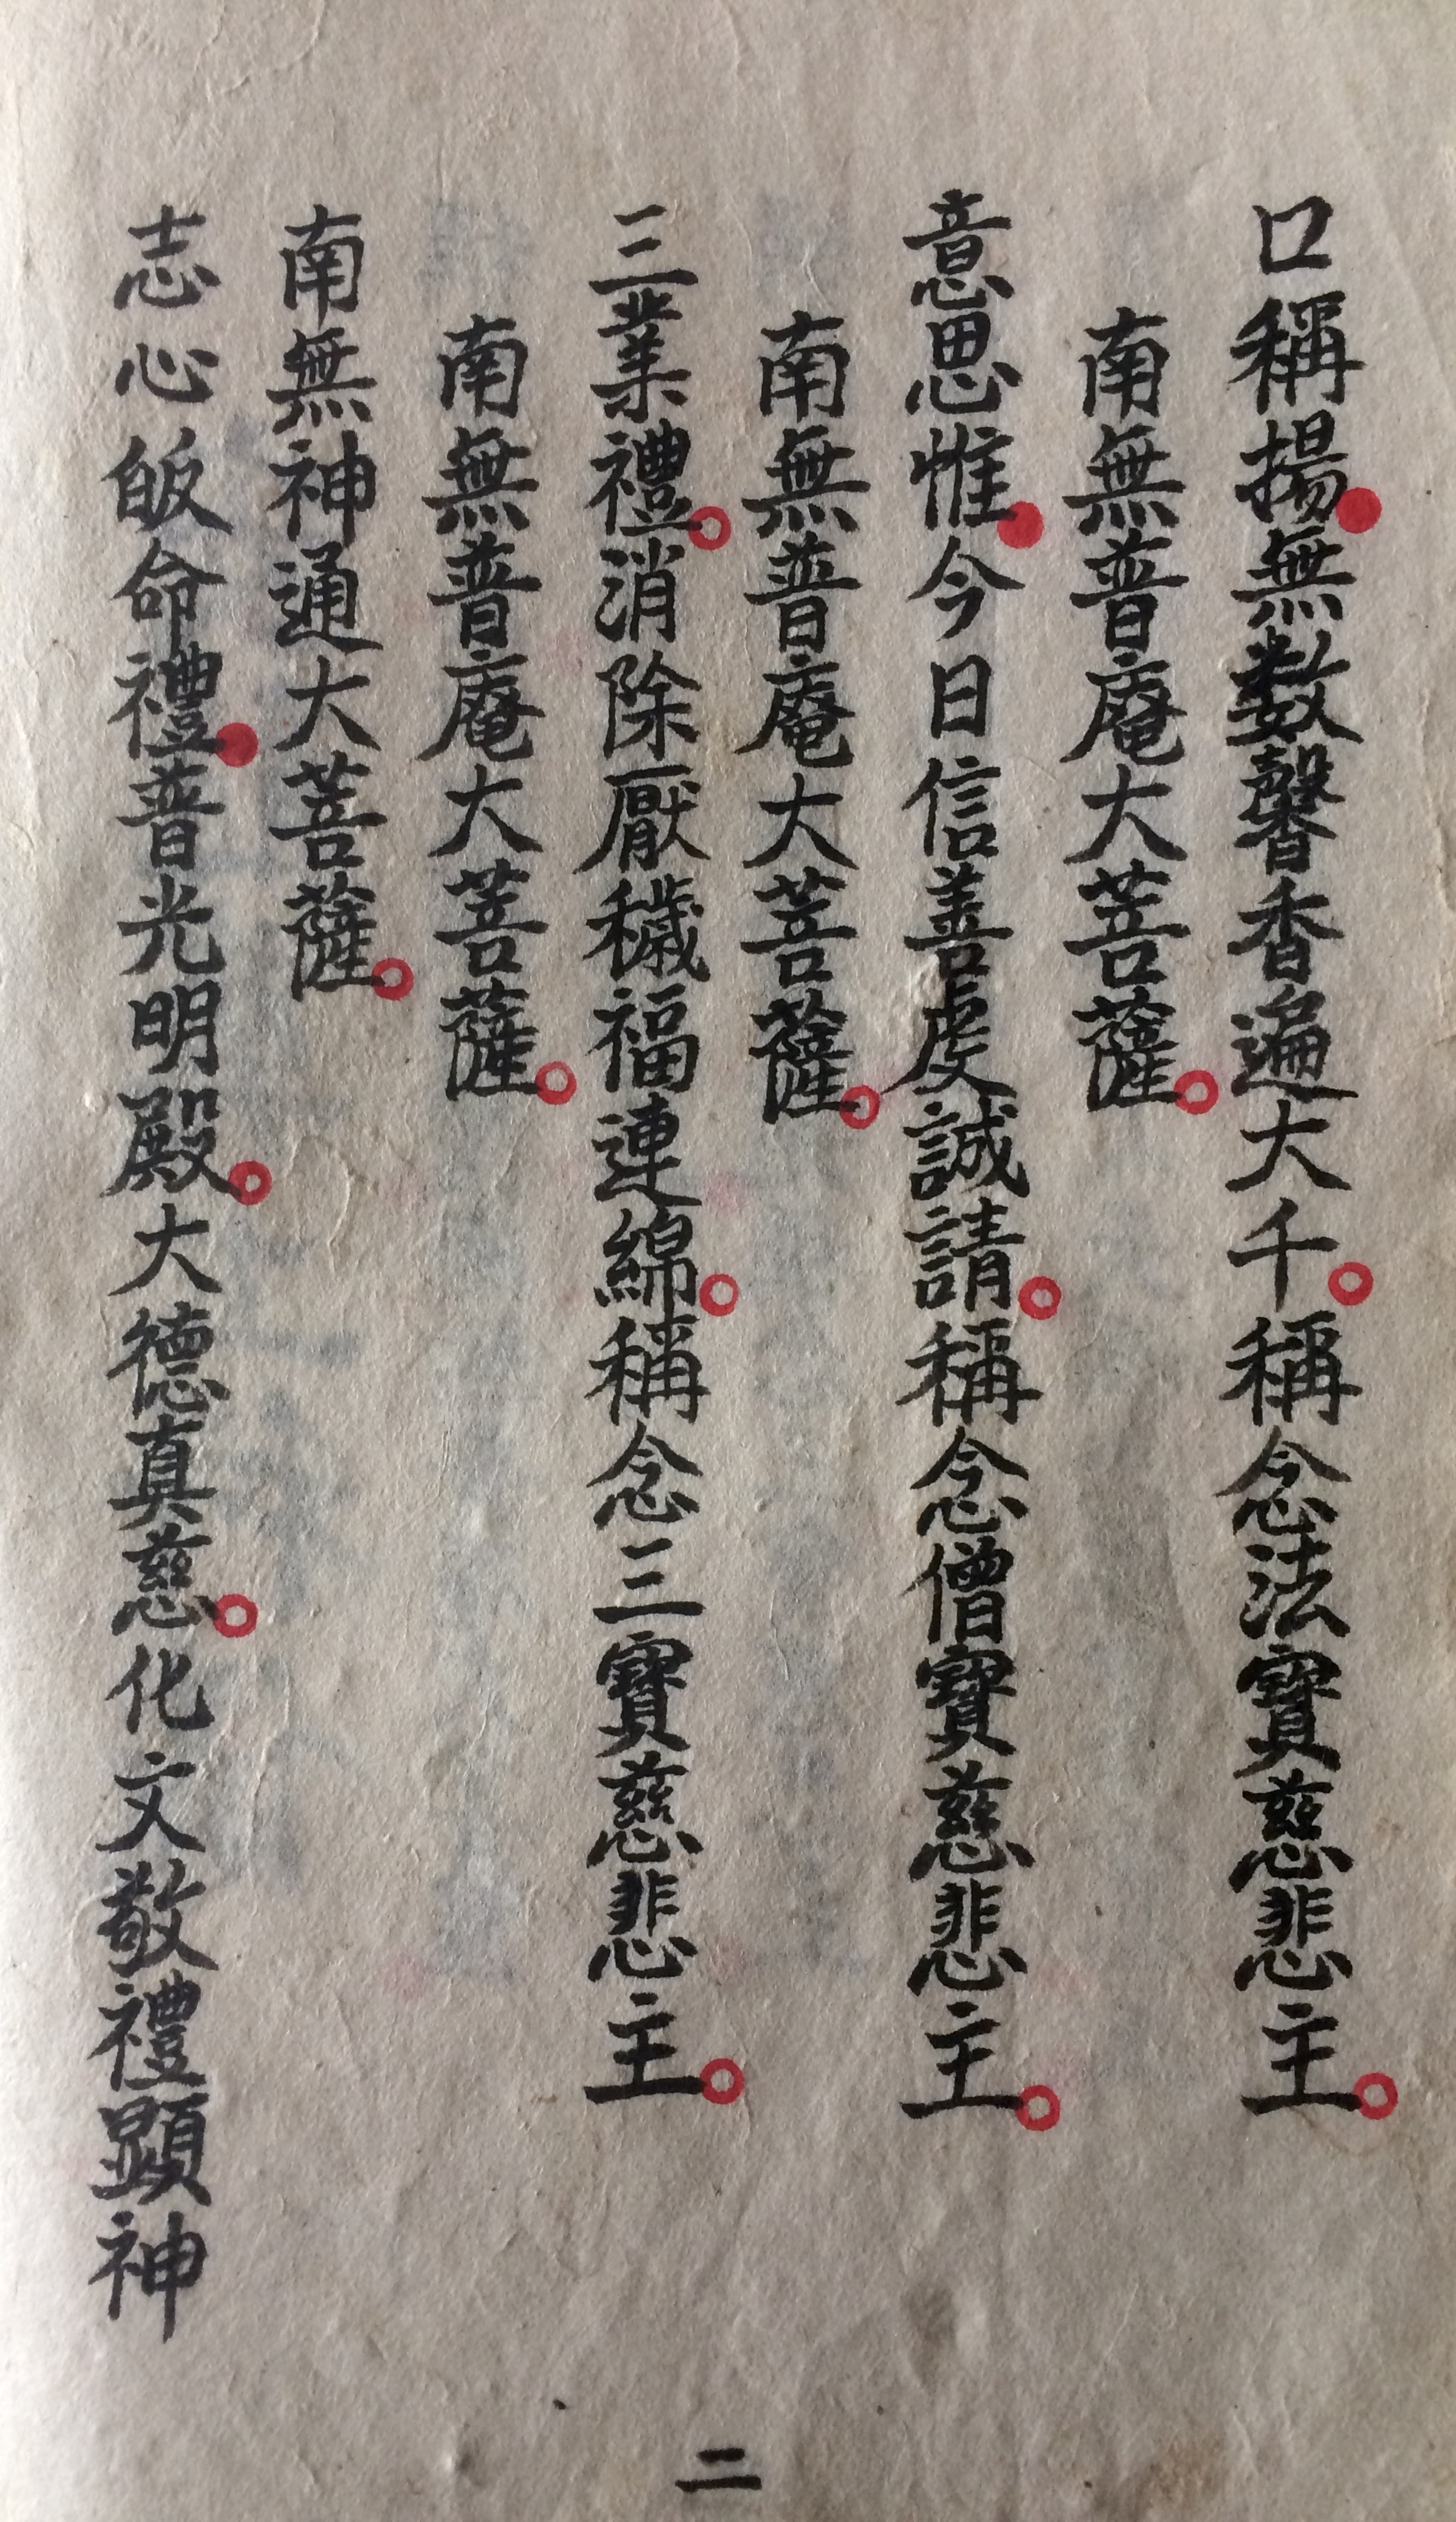 口稱揚無數馨香遍大千。稱念法寶慈悲主。
南無普庵大菩薩。
意思惟今日信善虔誠請。稱念僧寶慈悲主。
南無普庵大菩薩。
三業禮。消除厭穢福連綿。稱念三寶慈悲主。
南無普庵大菩薩。
南無神通大菩薩。
志心皈命禮普光明殿。大德真慈。化文敬禮顕神
二